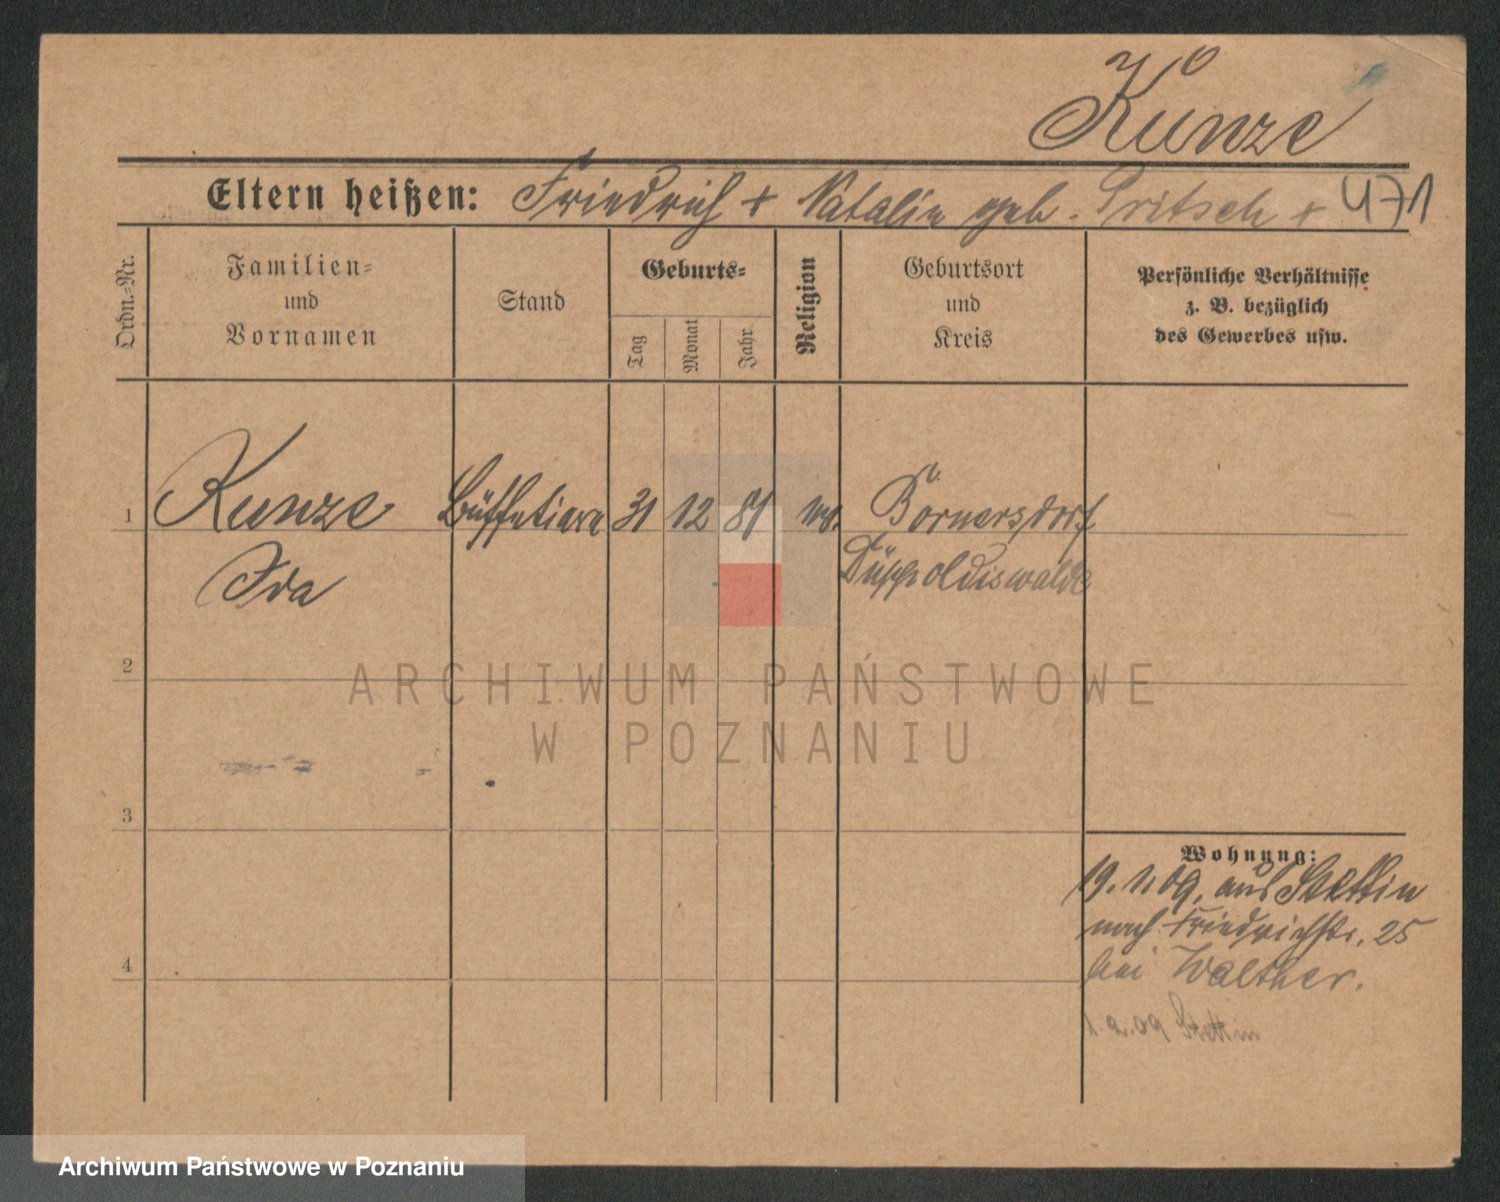 Kunze
Eltern heißen: Friedrich + Natalie geb. Pritsch + 471
Ordn.-Nr.
Familien-
und
Vornamen
Stand
Geburts-
Tag
Monat
Jahr
Religion
Geburtsort
und
Kreis
Persönliche Verhältnisse
z. B. bezüglich
des Gewerbes usw.
1
Kunze
Ida
Büffetiere
31
12
81
Börnersdorf
Dippoldiswalde
2
3
4
Wohnung:
19. 1. 09. aus Stettin
nach Friedrichstr. 25
bei Walther.
1.2.09 Stettin
ARCHIWUM PAŃSTWOWE
W POZNANIU
Archiwum Państwowe w Poznaniu